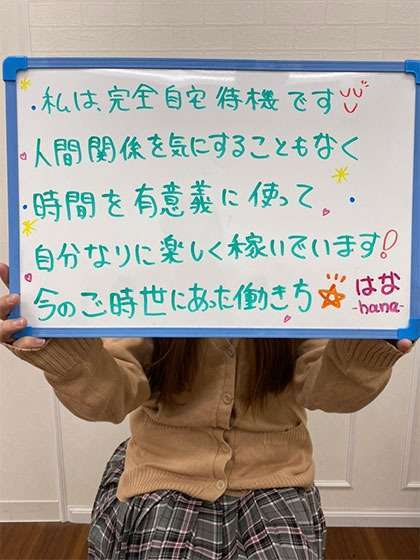 私は、完全自宅待機です
人間関係を気にすることもなく
時間を有意義に使って
自分なりに楽しく稼いでいます!
今のご時世にあった働きち
はな
-hana-